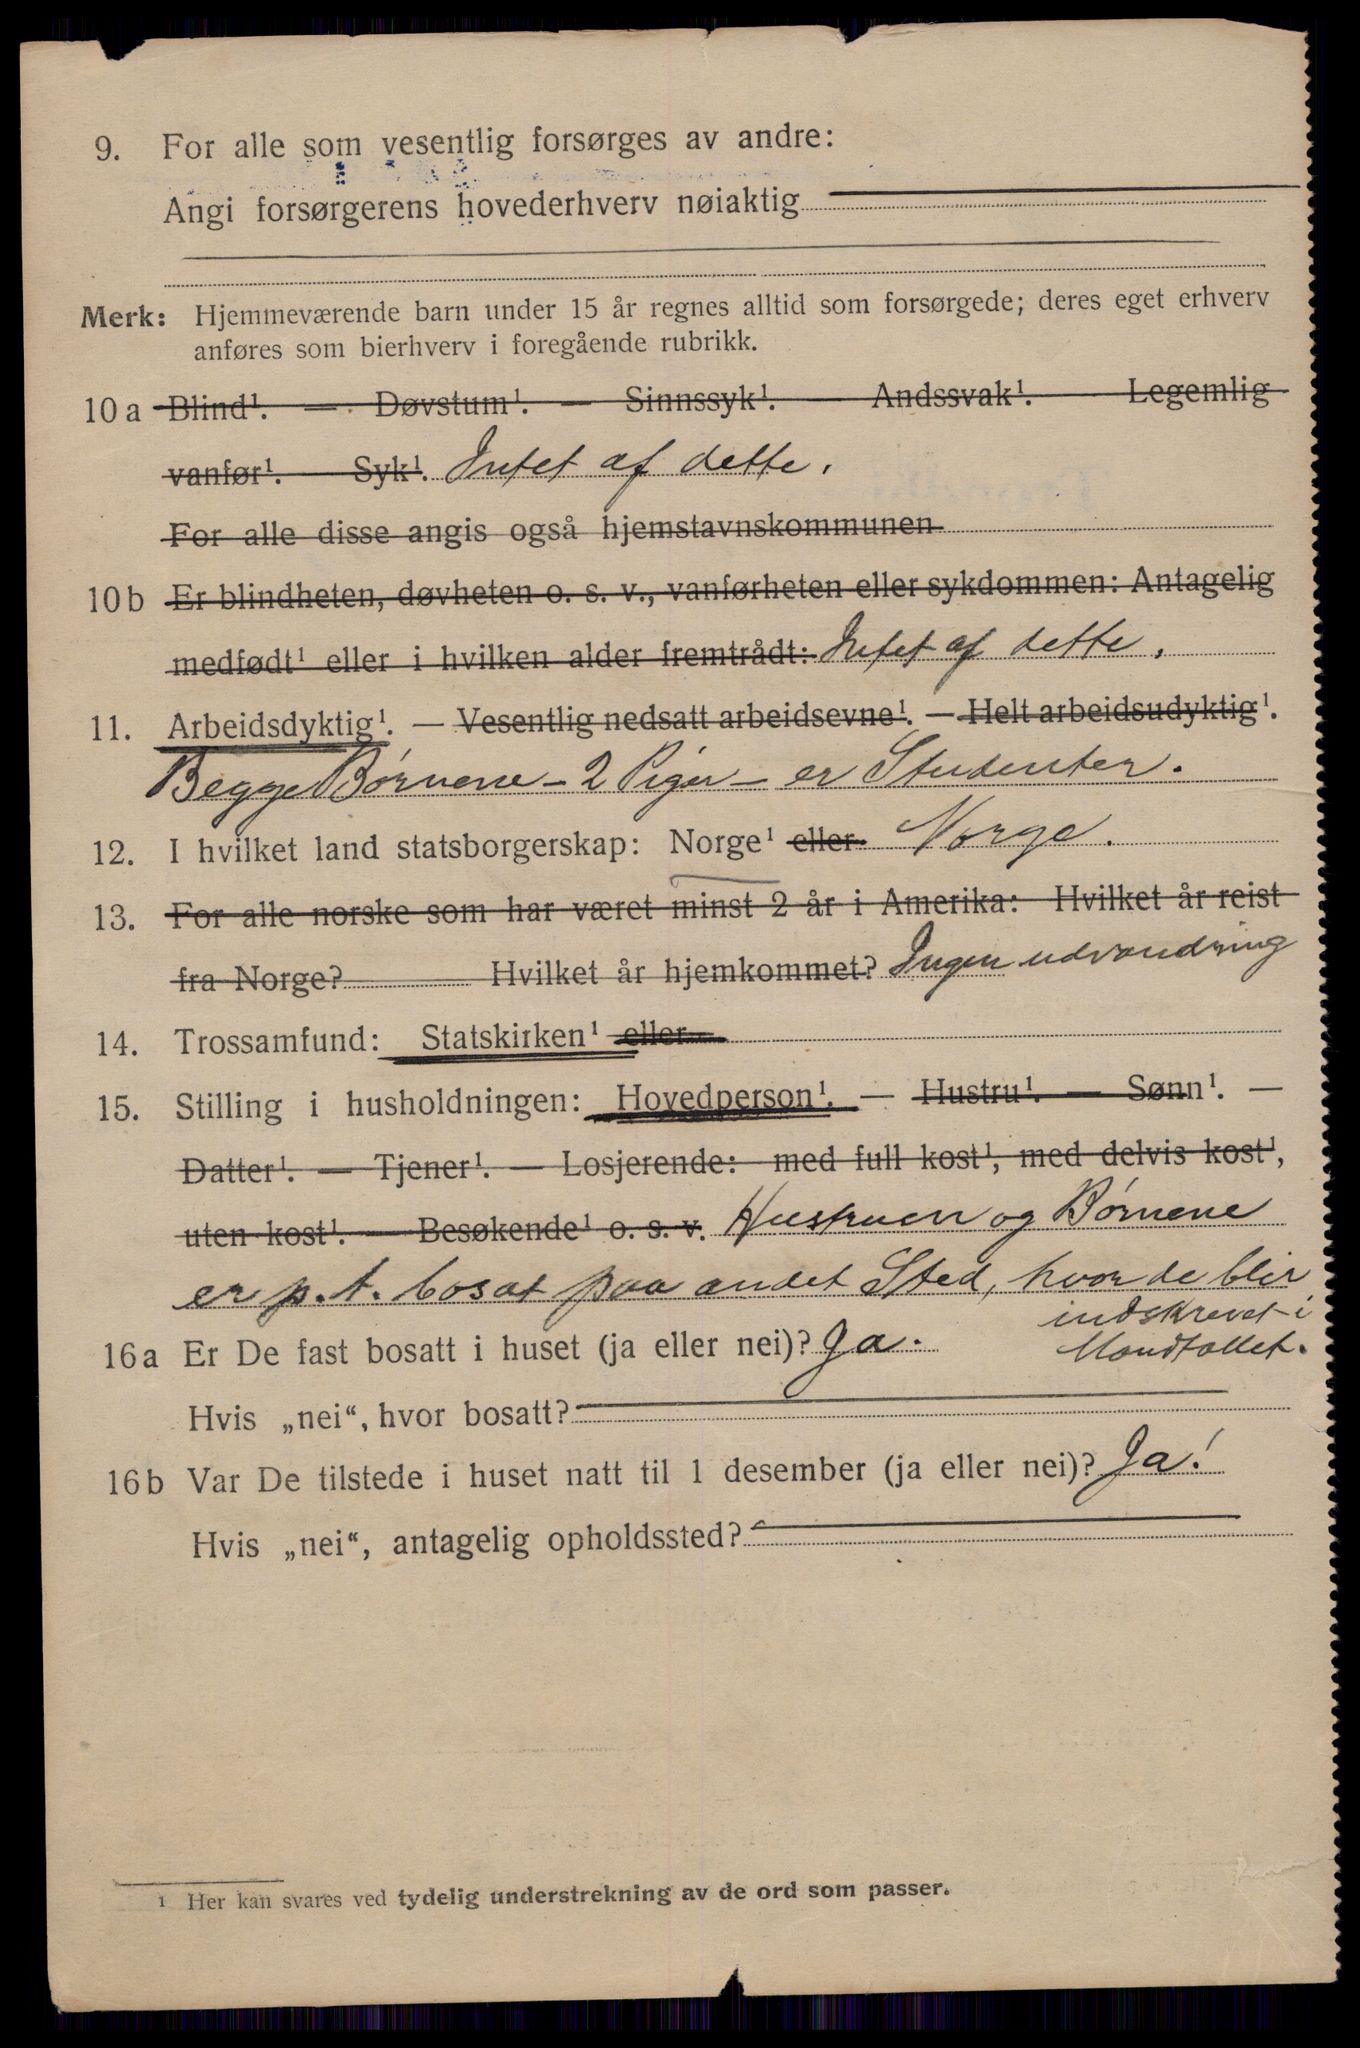 9. For alle som vesentlig forsørges av andre:
Angi forsørgerens hovederhverv nøiaktig
Merk: Hjemmeværende barn under 15 år regnes alltid som forsørgede; deres eget erhverv
anføres som bierhverv i foregående rubrikk.
10 a Blind¹. — Døvstum¹. — Sinnssyk¹. — Andssvak¹. — Legemlig
vanfør¹. — Syk¹. Intet af dette.
For alle disse angis også hjemstavnskommunen
10 b Er blindheten, døvheten o. s. v., vanførheten eller sykdommen: Antagelig
medfødt¹ eller i hvilken alder fremtrådt: Intet af dette.
11. Arbeidsdyktig¹. — Vesentlig nedsatt arbeidsevne¹. — Helt arbeidsudyktig¹.
Begge Børnene - 2 Piger - er Studenter.
12. I hvilket land statsborgerskap: Norge¹ eller Norge.
13. For alle norske som har været minst 2 år i Amerika: Hvilket år reist
fra Norge? Hvilket år hjemkommet? Ingen udvandring
14. Trossamfund: Statskirken¹ eller
15. Stilling i husholdningen: Hovedperson¹. — Hustru¹. — Sønn¹. —
Datter¹. — Tjener¹. — Losjerende: med full kost¹, med delvis kost¹,
uten kost¹. — Besøkende¹ o. s. v. Hustruen og Børnene
er p. t. bosat paa andet Sted, hvor de blir
indskrevet i
Mandtallet.
16 a Er De fast bosatt i huset (ja eller nei)? Ja.
Hvis „nei“, hvor bosatt?
16 b Var De tilstede i huset natt til 1 desember (ja eller nei)? Ja!
Hvis „nei“, antagelig opholdssted?
1 Her kan svares ved tydelig understrekning av de ord som passer.